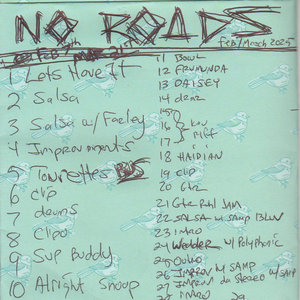 NO ROADS
Feb/March 2025
1 Lets Move It
2 Salsa
3 Salsa w/ Farley
4 Improvments
5 Tourettes
6 Clip
7 drums
8 Clipo
9 Sup Buddy
10 Alright Snoop
11 BOWL
12 FRUMUNDA
13 DAISEY
14 draz
15
16
17
18 HAIDIAN
19 CLIP
20 Gtr
21 Gtr Ruhl JAM
22 SALSA w/ SAMP BLUN
23 IMRO
24 w/ Polyphonic
25 Ouiuo
26 IMPROV w/ SAMP
27 IMPROV da Stereo w/ SAMP